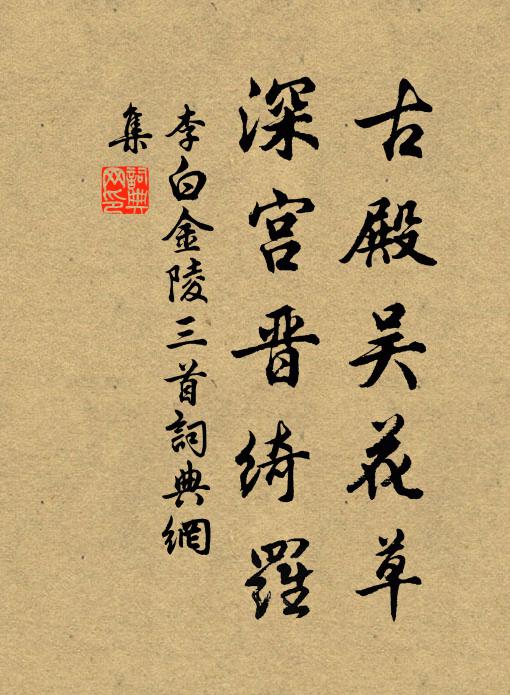 古殿吴花草
深宫晋绮羅
李白金陵三首詞典網
集
詞典
网印